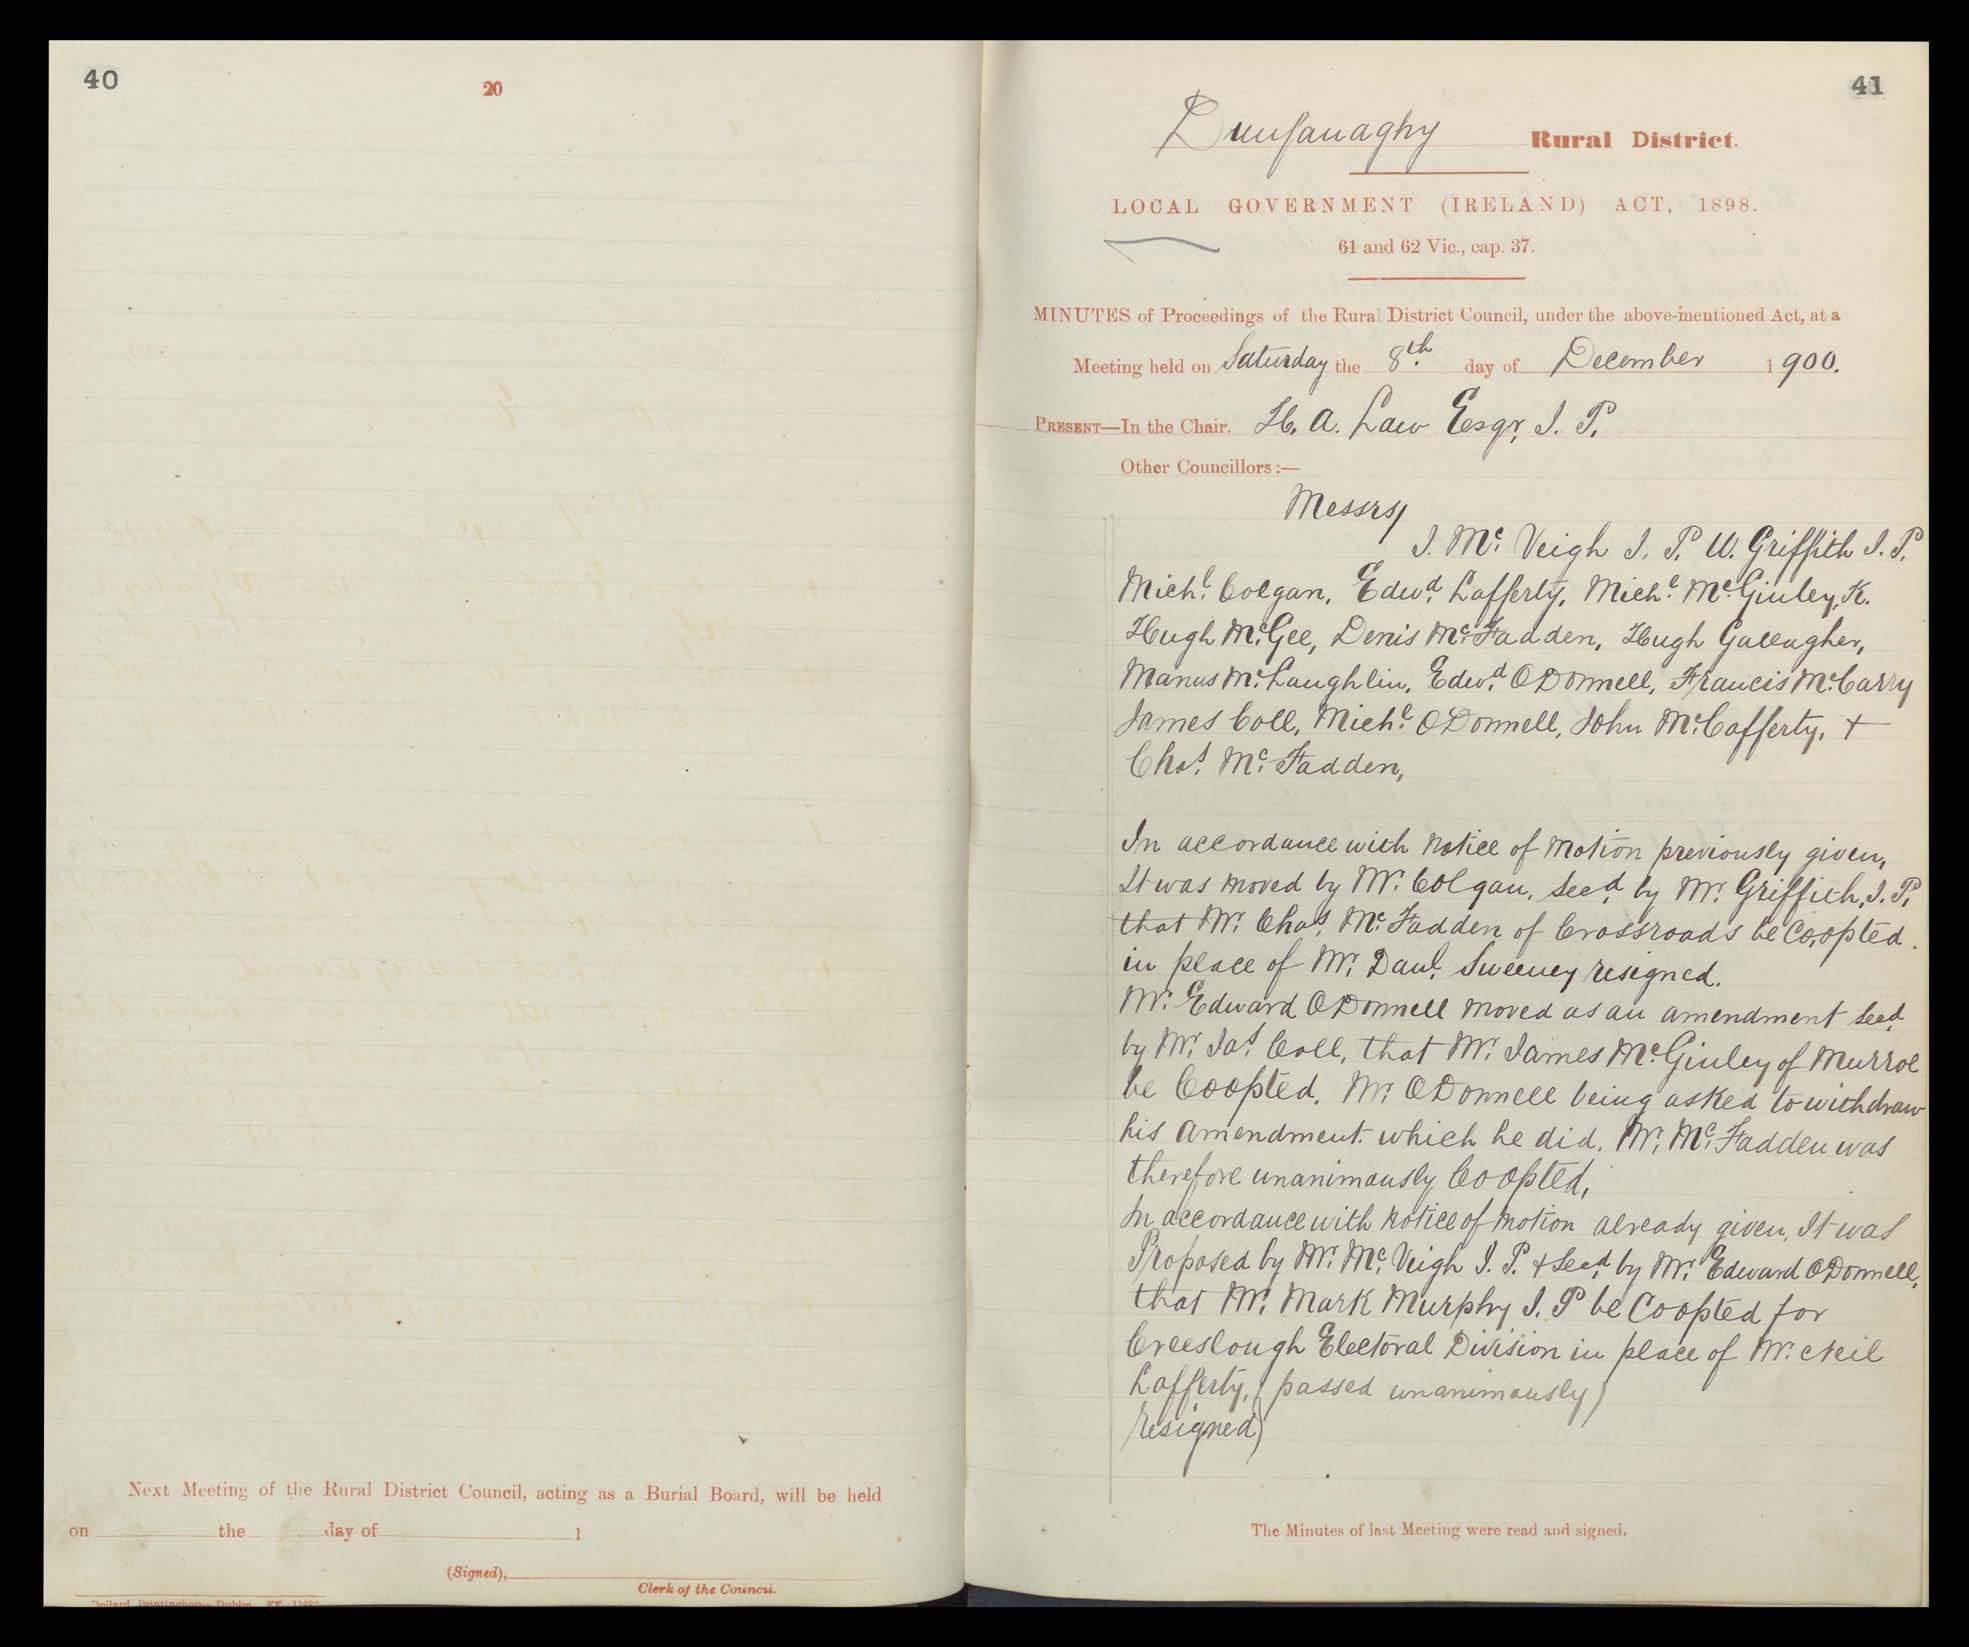 40
20
Next Meeting of the Rural District Council, acting as a Burial Board, will be held
on the day of 1
(Signed),
Clerk of the Council.
41
Dunfanaghy Rural District.
LOCAL GOVERNMENT (IRELAND) ACT, 1898.
61 and 62 Vic., cap. 37.
MINUTES of Proceedings of the Rural District Council, under the above-mentioned Act, at a
Meeting held on Saturday the 8th day of December 1900.
PRESENT—In the Chair. H. A. Law Esqr, J. P.
Other Councillors:—
Messrs/
J. Mc Veigh J. P. W. Griffith J. P.
Michl. Colgan, Edwd. Lafferty, Michl. McGinley, K.
Hugh McGee, Denis McFadden, Hugh Gallagher,
Manus McLaughlin, Edwd. ODonnell, Francis McCarry
James Coll, Michl. ODonnell, John McCafferty, +
Chas. McFadden,
In accordance with notice of motion previously given,
It was moved by Mr. Colgan, Secd. by Mr. Griffith, J. P.
that Mr. Chas. McFadden of Crossroads be Co,opted.
in place of Mr. Danl. Sweeney resigned.
Mr. Edward ODonnell moved as an amendment Secd.
by Mr. Jas. Coll, that Mr. James McGinley of Murroe
be Coopted. Mr. ODonnell being asked to withdraw
his amendment. which he did. Mr. McFadden was
therefore unanimously Coopted,
In accordance with notice of motion already given, It was
Proposed by Mr. McVeigh J. P. + Secd. by Mr. Edward ODonnell,
that Mr. Mark Murphy J. P be Coopted for
Creeslough Electoral Division in place of Mr. Neil
Lafferty, (passed unanimously)
resigned)
The Minutes of last Meeting were read and signed.